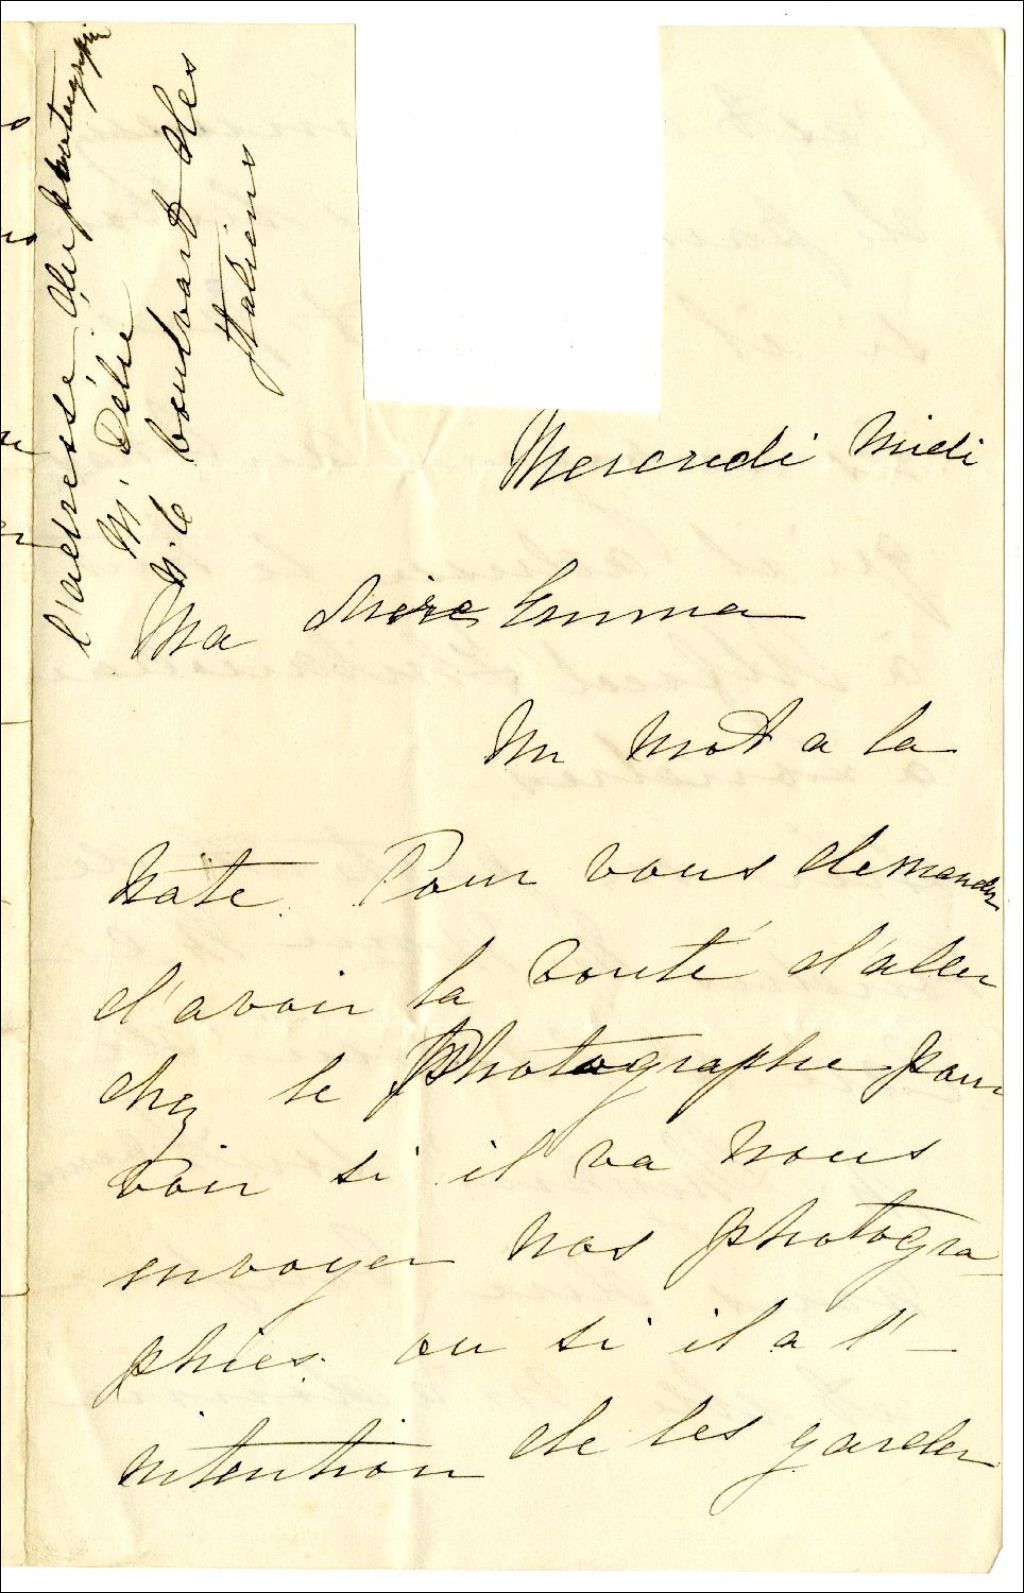 l'adresse du photographe
M. Délié
N. 6 boulvart des
Italiens
Mercredi Midi
Ma chère Emma
Un mot a la
hate. Pour vous demander
d'avoir la bonté d'aller
chez le Photographe pour
voir si il va nous
envoyer nos photogra
phies. ou si il a l'
intention de les garder